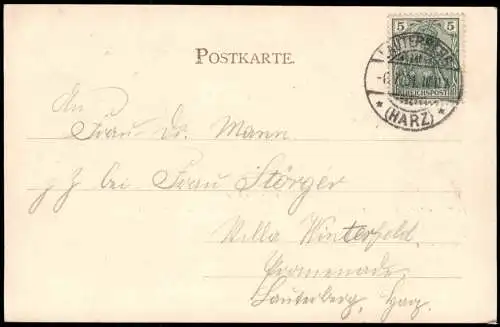 POSTKARTE.
5 5
REICHSPOST
LAUTERBERG
* (HARZ) *
An
Frau Dr. Mann
z Z bei Frau Störger
Villa Winterfeld.
Promenade.
Lauterberg, Harz.